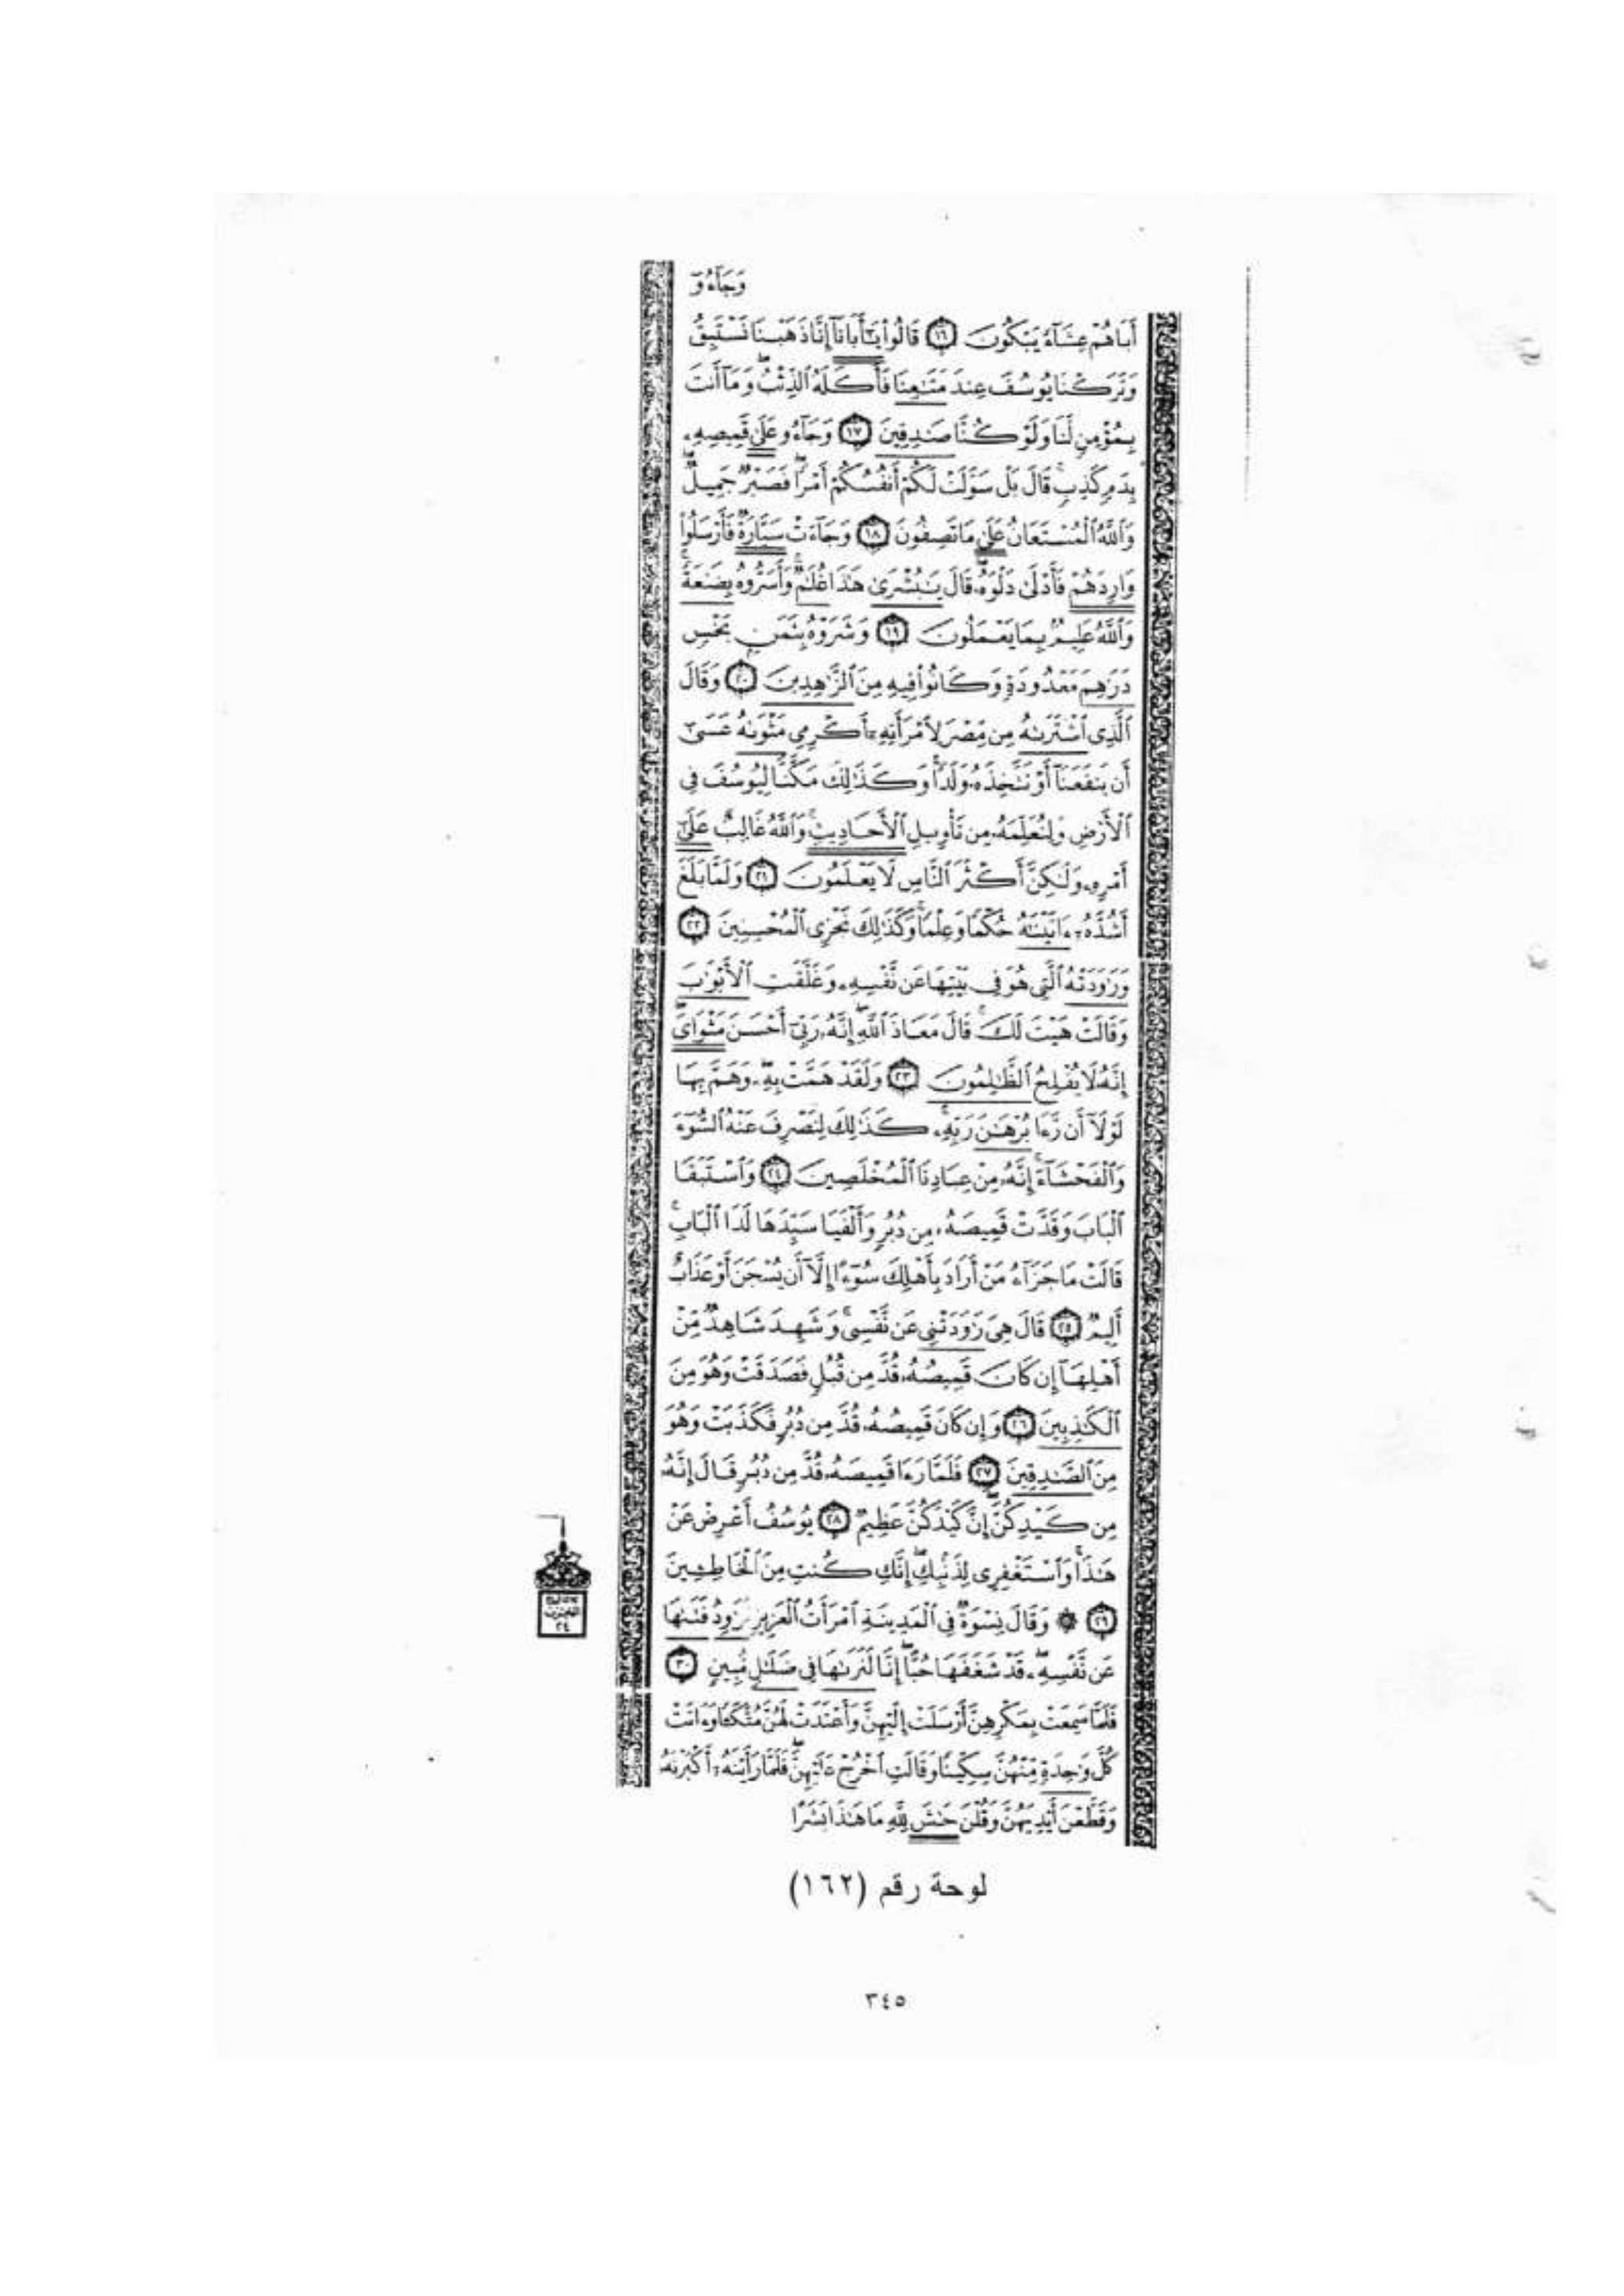 وَجَآءُوٓ
أَبَاهُمْ عِشَآءً يَبْكُونَ ١٦ قَالُوا۟ يَٰٓأَبَانَآ إِنَّا ذَهَبْنَا نَسْتَبِقُ
وَتَرَكْنَا يُوسُفَ عِندَ مَتَٰعِنَا فَأَكَلَهُ ٱلذِّئْبُ ۖ وَمَآ أَنتَ
بِمُؤْمِنٍ لَّنَا وَلَوْ كُنَّا صَٰدِقِينَ ١٧ وَجَآءُو عَلَىٰ قَمِيصِهِۦ
بِدَمٍ كَذِبٍ ۚ قَالَ بَلْ سَوَّلَتْ لَكُمْ أَنفُسُكُمْ أَمْرًا ۖ فَصَبْرٌ جَمِيلٌ ۖ
وَٱللَّهُ ٱلْمُسْتَعَانُ عَلَىٰ مَا تَصِفُونَ ١٨ وَجَآءَتْ سَيَّارَةٌ فَأَرْسَلُوا۟
وَارِدَهُمْ فَأَدْلَىٰ دَلْوَهُۥ ۖ قَالَ يَٰبُشْرَىٰ هَٰذَا غُلَٰمٌ ۚ وَأَسَرُّوهُ بِضَٰعَةً ۚ
وَٱللَّهُ عَلِيمٌۢ بِمَا يَعْمَلُونَ ١٩ وَشَرَوْهُ بِثَمَنٍۭ بَخْسٍ
دَرَٰهِمَ مَعْدُودَةٍ وَكَانُوا۟ فِيهِ مِنَ ٱلزَّٰهِدِينَ ٢٠ وَقَالَ
ٱلَّذِى ٱشْتَرَىٰهُ مِن مِّصْرَ لِٱمْرَأَتِهِۦٓ أَكْرِمِى مَثْوَىٰهُ عَسَىٰٓ
أَن يَنفَعَنَآ أَوْ نَتَّخِذَهُۥ وَلَدًا ۚ وَكَذَٰلِكَ مَكَّنَّا لِيُوسُفَ فِى
ٱلْأَرْضِ وَلِنُعَلِّمَهُۥ مِن تَأْوِيلِ ٱلْأَحَادِيثِ ۚ وَٱللَّهُ غَالِبٌ عَلَىٰٓ
أَمْرِهِۦ وَلَٰكِنَّ أَكْثَرَ ٱلنَّاسِ لَا يَعْلَمُونَ ٢١ وَلَمَّا بَلَغَ
أَشُدَّهُۥٓ ءَاتَيْنَٰهُ حُكْمًا وَعِلْمًا ۚ وَكَذَٰلِكَ نَجْزِى ٱلْمُحْسِنِينَ ٢٢
وَرَٰوَدَتْهُ ٱلَّتِى هُوَ فِى بَيْتِهَا عَن نَّفْسِهِۦ وَغَلَّقَتِ ٱلْأَبْوَٰبَ
وَقَالَتْ هَيْتَ لَكَ ۚ قَالَ مَعَاذَ ٱللَّهِ ۖ إِنَّهُۥ رَبِّىٓ أَحْسَنَ مَثْوَاىَ ۖ
إِنَّهُۥ لَا يُفْلِحُ ٱلظَّٰلِمُونَ ٢٣ وَلَقَدْ هَمَّتْ بِهِۦ ۖ وَهَمَّ بِهَا
لَوْلَآ أَن رَّءَا بُرْهَٰنَ رَبِّهِۦ ۚ كَذَٰلِكَ لِنَصْرِفَ عَنْهُ ٱلسُّوٓءَ
وَٱلْفَحْشَآءَ ۚ إِنَّهُۥ مِنْ عِبَادِنَا ٱلْمُخْلَصِينَ ٢٤ وَٱسْتَبَقَا
ٱلْبَابَ وَقَدَّتْ قَمِيصَهُۥ مِن دُبُرٍ وَأَلْفَيَا سَيِّدَهَا لَدَا ٱلْبَابِ ۚ
قَالَتْ مَا جَزَآءُ مَنْ أَرَادَ بِأَهْلِكَ سُوٓءًا إِلَّآ أَن يُسْجَنَ أَوْ عَذَابٌ
أَلِيمٌ ٢٥ قَالَ هِىَ رَٰوَدَتْنِى عَن نَّفْسِى ۚ وَشَهِدَ شَاهِدٌ مِّنْ
أَهْلِهَآ إِن كَانَ قَمِيصُهُۥ قُدَّ مِن قُبُلٍ فَصَدَقَتْ وَهُوَ مِنَ
ٱلْكَٰذِبِينَ ٢٦ وَإِن كَانَ قَمِيصُهُۥ قُدَّ مِن دُبُرٍ فَكَذَبَتْ وَهُوَ
مِنَ ٱلصَّٰدِقِينَ ٢٧ فَلَمَّا رَءَا قَمِيصَهُۥ قُدَّ مِن دُبُرٍ قَالَ إِنَّهُۥ
مِن كَيْدِكُنَّ ۖ إِنَّ كَيْدَكُنَّ عَظِيمٌ ٢٨ يُوسُفُ أَعْرِضْ عَنْ
هَٰذَا ۚ وَٱسْتَغْفِرِى لِذَنۢبِكِ ۖ إِنَّكِ كُنتِ مِنَ ٱلْخَاطِـِٔينَ
٢٩ ۞ وَقَالَ نِسْوَةٌ فِى ٱلْمَدِينَةِ ٱمْرَأَتُ ٱلْعَزِيزِ تُرَٰوِدُ فَتَىٰهَا
عَن نَّفْسِهِۦ ۖ قَدْ شَغَفَهَا حُبًّا ۖ إِنَّا لَنَرَىٰهَا فِى ضَلَٰلٍ مُّبِينٍ ٣٠
فَلَمَّا سَمِعَتْ بِمَكْرِهِنَّ أَرْسَلَتْ إِلَيْهِنَّ وَأَعْتَدَتْ لَهُنَّ مُتَّكَـًٔا وَءَاتَتْ
كُلَّ وَٰحِدَةٍ مِّنْهُنَّ سِكِّينًا وَقَالَتِ ٱخْرُجْ عَلَيْهِنَّ ۖ فَلَمَّا رَأَيْنَهُۥٓ أَكْبَرْنَهُۥ
وَقَطَّعْنَ أَيْدِيَهُنَّ وَقُلْنَ حَٰشَ لِلَّهِ مَا هَٰذَا بَشَرًا
الحزب
٢٤
لوحة رقم (١٦٢)
٣٤٥